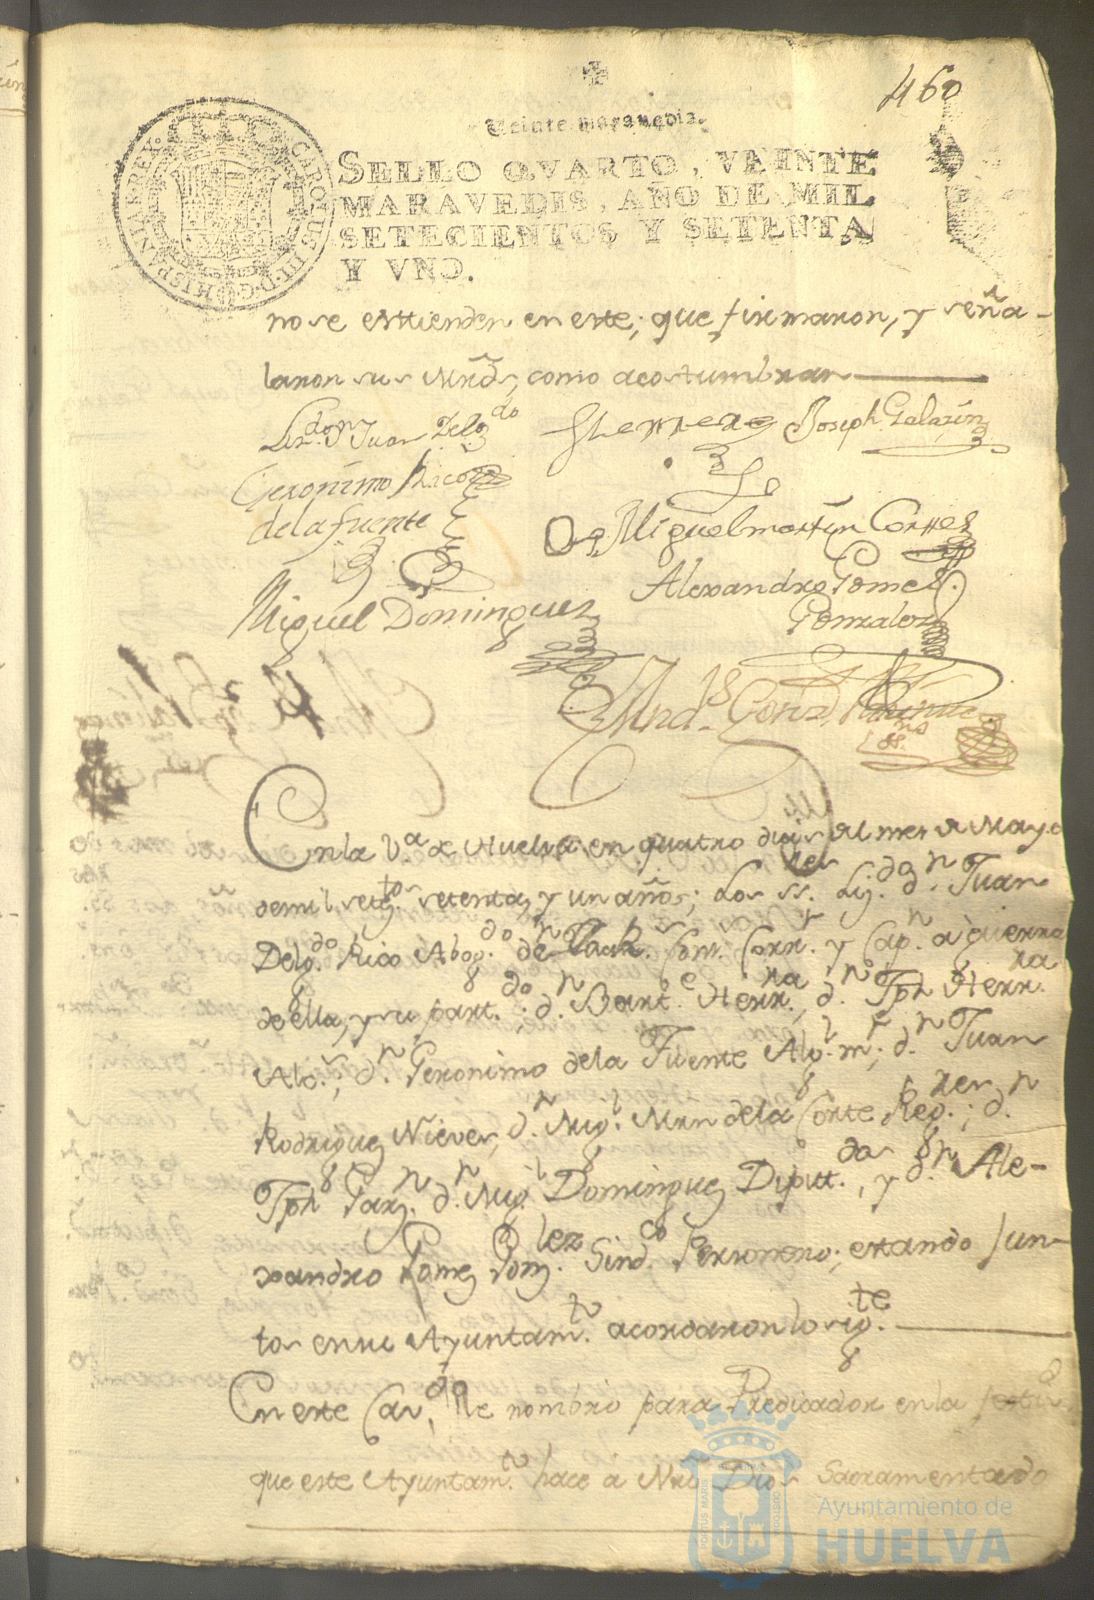 460
Veinte maravedis.
SELLO QVARTO, VEINTE
MARAVEDIS, AÑO DE MIL
SETECIENTOS Y SETENTA
Y VNO.
CAROLUS III D G HISPANIAR REX
no se esttienden en este; que firmaron, y seña-
laron sus Mrds, como acostumbran
Lizdo. Dn Juan Delgdo Herrera Joseph Galazin
Geronimo Rico
de la fuente Miguel martin Corttes
Alexandro Gomes
Miguel Dominguez Gonzalez
En la Va de Huelva en quatro dias del mes de Mayo
de mil setettos setenta, y un años; Los ss.res Lizdo. dn Juan
Delgdo. Rico Abogdo. de los Rs. Conss. Corrr. y Capn. a guerra
de ella, y su partdo.; dn. Barte. Herrra., dn. Jph Herrra.
Alg.; dn. Geronimo de la Fuente Algl. mr; dn Juan
Rodriguez Nieves, dn Migl. Mrn de la Corte Regres.; dn
Jph Garzn. dn Migl. Dominguez Diputtdos., y dn. Ale-
xandro Gomz Gonzlez. Sindco Personero; estando Jun-
tos en su Ayuntamto. acordaron lo sigte.
En este Cavdo. se nombro para Predicador en la
que este Ayuntamto hace a Nro Dios Sacramentado
Ayuntamiento de
HUELVA